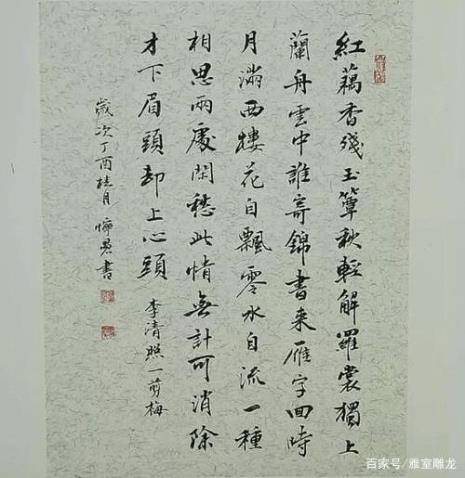 紅藕香残玉簟秋輕解羅裳獨上
蘭舟雲中誰寄錦書来雁字回時
月滿西樓花自飄零水自流一種
相思兩處閑愁此情無計可消除
才下眉頭却上心頭 李清照一剪梅
歲次丁酉桂月 書
百家号/雅室雕龙